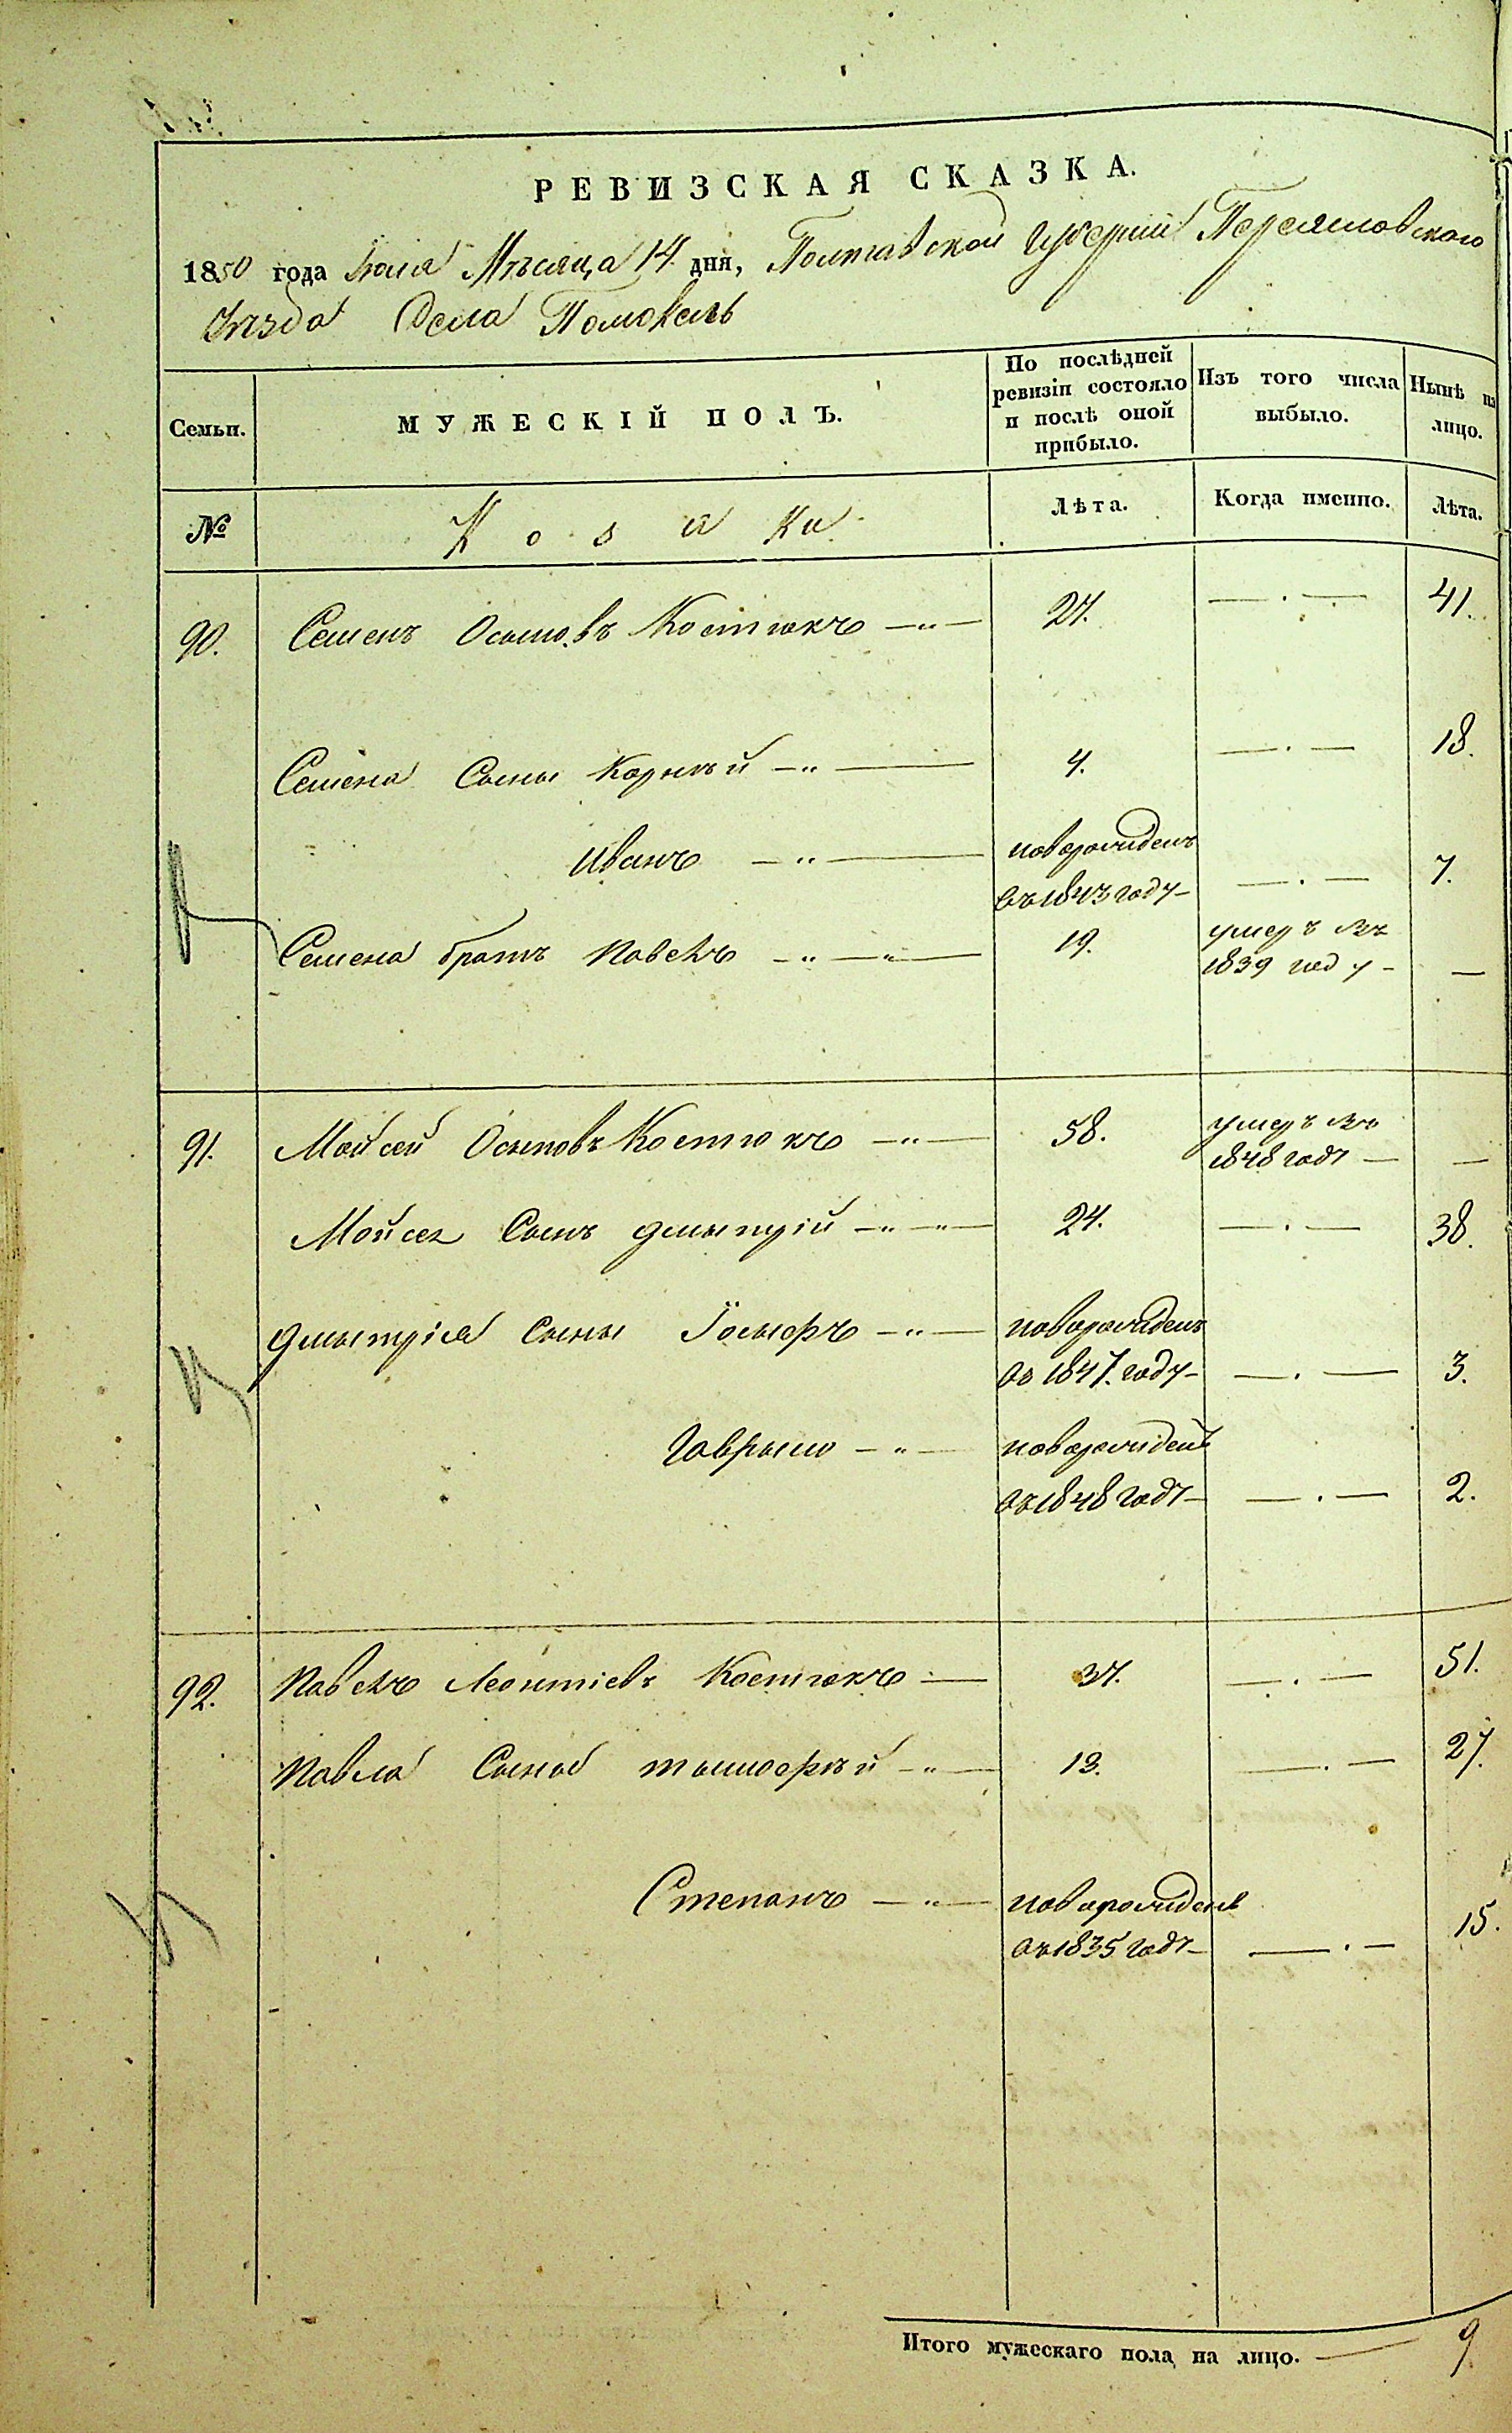 РЕВИЗСКАЯ СКАЗКА.
1850 года Июля Мѣсяца 14 дня, Полтавской Губерніи Переяславского
Уѣзда Села Помокель
Семьи.
МУЖЕСКІЙ ПОЛЪ.
По послѣдней ревизіи состояло и послѣ оной прибыло.
Изъ того числа выбыло.
Нынѣ на лицо.
№ Козаки Лѣта. Когда именно. Лѣта.
90. Семенъ Осиповъ Костюкъ 27. 41.
Семена Сыны Корнѣй 4. 18.
Иванъ новорожденъ
въ 1843 году 7.
Семена братъ Павелъ 19. умеръ въ
1839 году
91. Мойсей Осиповъ Костюкъ 58. умеръ въ
1848 году
Мойсея Сынъ Дмытрій 24. 38.
Дмытрія Сыны Іосыфъ новорожденъ
въ 1847. году 3.
Гаврыло новорожденъ
въ 1848 году 2.
92. Павелъ Леонтіевъ Костюкъ 37. 51.
Павла Сыны Тымофѣй 13. 27.
Степанъ новорожденъ
въ 1835 году 15.
Итого мужескаго пола на лицо. 9